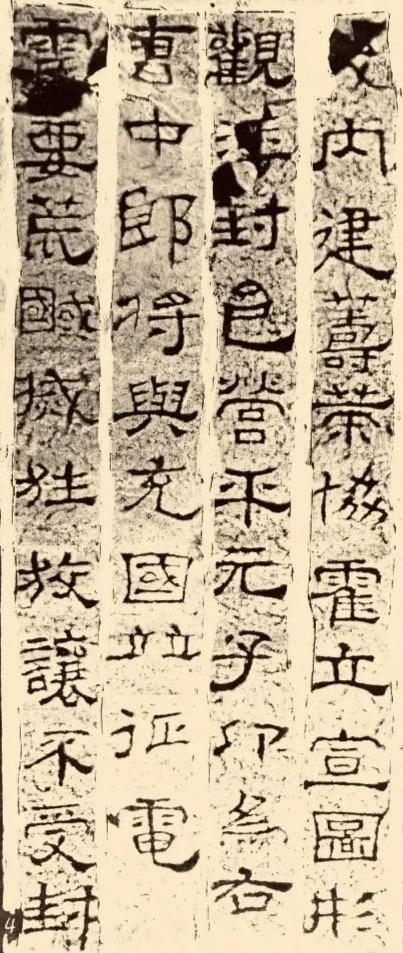 内建籌策協霍立宣圖形
觀封邑營平元子卬爲右
曹中郎將與充國竝征電
要荒馘滅狂狡讓不受封
4